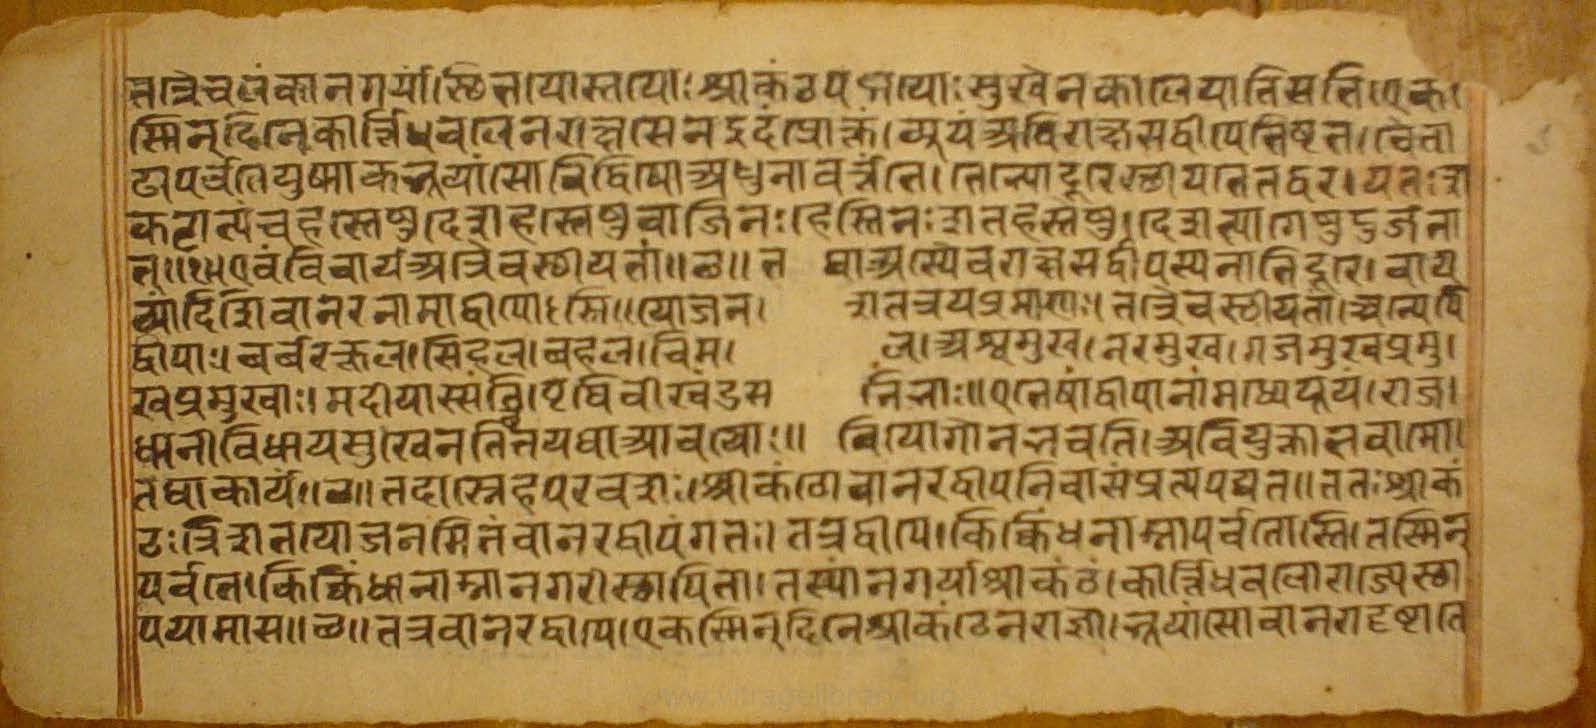 तत्रैव लंकानगर्यां स्थितयोस्तयोः श्रीकंठपद्मयोः सुखेन कालो याति सति। एक।
स्मिन् दिने कीर्त्तिधवलेन राक्षसेन इदं प्रोक्तं। यूयं अत्र राक्षसद्वीपे तिष्टत। वैता
ढ्यपर्वते युष्माकं भूयांसो विद्विषो अधुना वर्त्तंते। दूरे स्थीयते तद्वरं। यतः श
कटात् पंचहस्तेषु दशहस्तेषु वाजिनः। हस्तिनः शतहस्तेषु। देशत्यागेषु दुर्जना
त्॥१॥ एवं विचार्य अत्रैव स्थीयतां॥ छ॥ त था अस्यैव राक्षसद्वीपस्य नातिदूरे। वाय
व्यां दिशि वानरनामा द्वीपोऽस्ति॥ योजन। शतत्रयप्रमाणः। तत्रैव स्थीयतां। अन्येपि
द्वीपाः। बर्बरकूल। सिंहल। बहल। विम। ल। अश्वमुख। नरमुख। गजमुखप्रमु।
खप्रमुखाः। मदीयास्संति। पृथिवीखंडस न्निभाः॥ एतेषां द्वीपानां मध्ये यूयं। राज।
धानीं विधाय सुखेन तिष्टत यथा आवयोः॥ वियोगो न भवति। अवियुक्ता भवामो।
तथा कार्यं॥ छ॥ तदा स्नेहपरवशः। श्रीकंठो वानरद्वीपनिवासं प्रत्यपद्यत॥ ततः श्रीकं
ठः त्रिशतयोजनमितं वानरद्वीपं गतः। तत्र द्वीपे। किष्किंधनाम्ना पर्वतोस्ति। तस्मिन्
पर्वते। किष्किंधानाम्ना नगरी स्थापिता। तस्यां नगर्यां श्रीकंठं। कीर्त्तिधवलो राज्ये स्था
पयामास॥ छ॥ तत्र वानरद्वीपे। एकस्मिन् दिने श्रीकंठेन राज्ञा। भूयांसो वानरा दृष्टाः ते
www.vitragelibrary.org